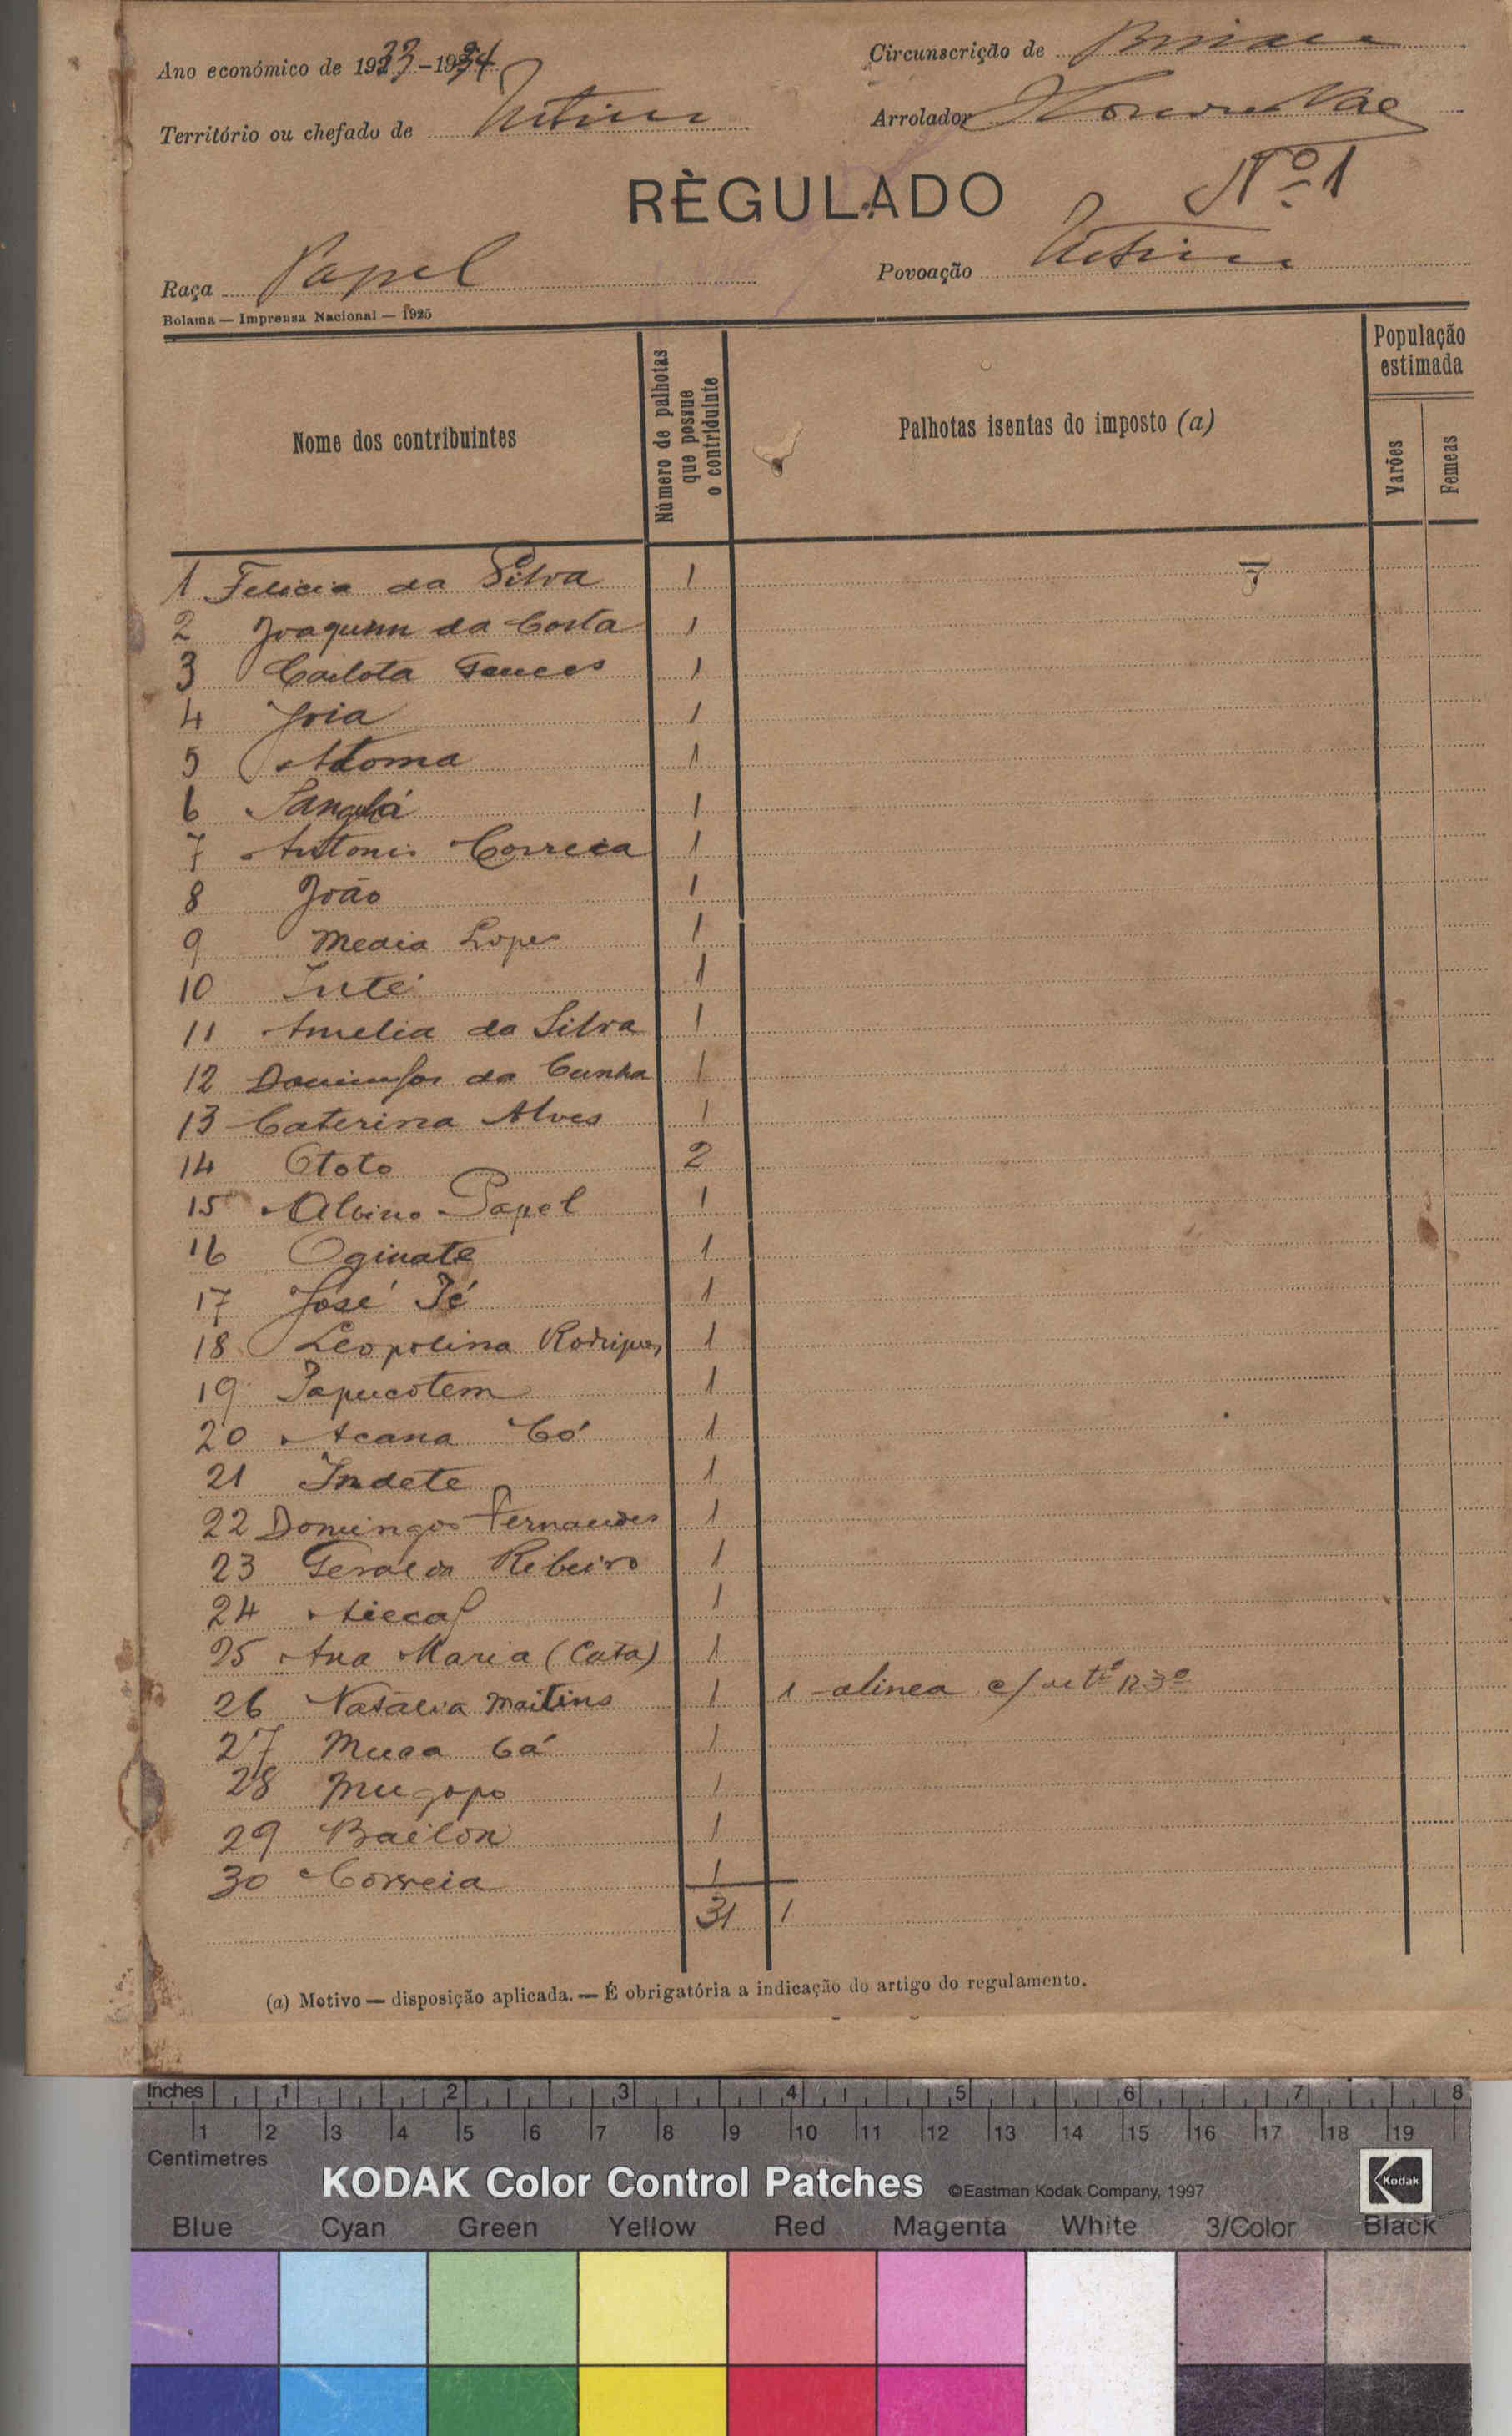 Ano económico de 1933-1934
Circunscrição de
Território ou chefado de
Arrolador
Nº 1
RÈGULADO
Raça Papel
Povoação
Bolama — Imprensa Nacional — 1925
Nome dos contribuintes
Número de palhotas que possue o contriduinte
Palhotas isentas do imposto (a)
População estimada
Varões
Femeas
1 Felicia da Silva 1
2 Joaquim da Costa 1
3 Carlota 1
4 Joia 1
5 Atoma 1
6 1
7 Antonio Correia 1
8 João 1
9 Media Lopes 1
10 Iuté 1
11 Amelia da Silva 1
12 Domingos da Cunha 1
13 Caterina Alves 1
14 Ototo 2
15 Albino Papel 1
16 Oginate 1
17 José Jé 1
18 Leopolina Rodrigues 1
19 Papucotem 1
20 Acana Có 1
21 Indete 1
22 Domingos Fernandes 1
23 Geralda Ribeiro 1
24 1
25 Ana Maria (Cata) 1
26 Natalia Martins 1 1 alinea c/ artº 123º
27 Musa Cá 1
28 Mugopo 1
29 Bailon 1
30 Correia 1
31 1
(a) Motivo — disposição aplicada. — É obrigatória a indicação do artigo do regulamento.
Inches 1 2 3 4 5 6 7 8
1 2 3 4 5 6 7 8 9 10 11 12 13 14 15 16 17 18 19
Centimetres
KODAK Color Control Patches ©Eastman Kodak Company, 1997 Kodak
Blue Cyan Green Yellow Red Magenta White 3/Color Black